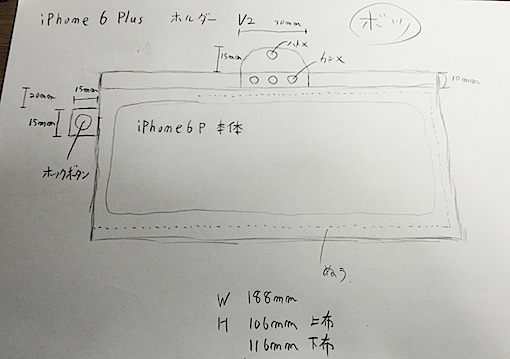 iPhone 6 Plus ホルダー V2
ボツ
70mm
ハトメ
15mm
カシメ
10mm
20mm
15mm
15mm
iPhone6P 本体
ホックボタン
ぬう
W 188mm
H 106mm 上布
116mm 下布